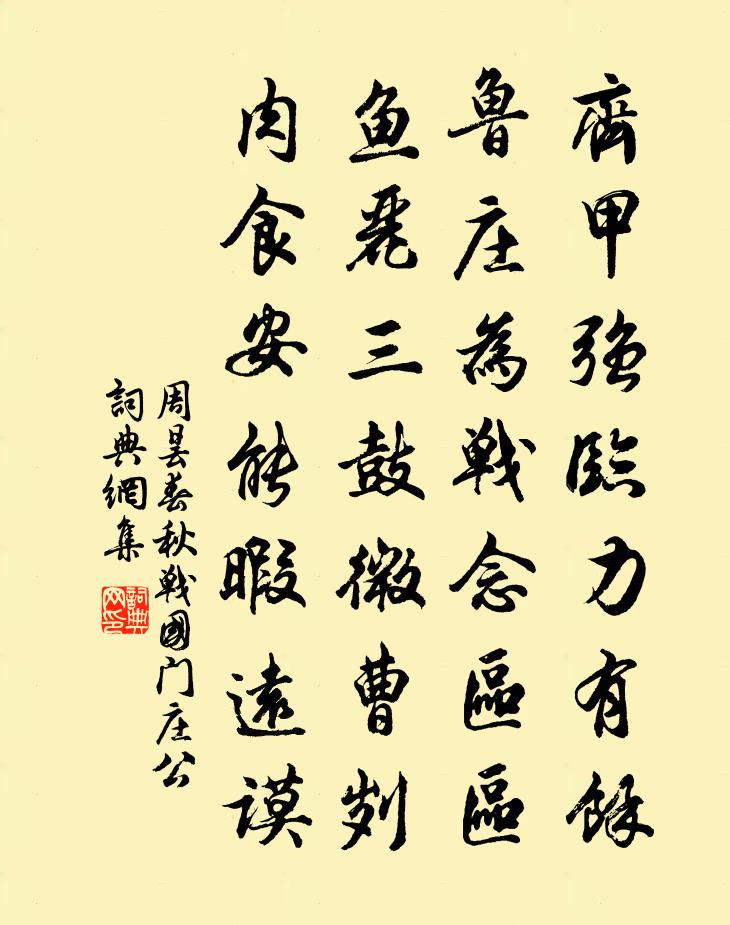 齊甲強臨力有餘
魯庄為戰念區區
魚麗三鼓微曹刿
肉食安能暇遠謨
周曇春秋戰國门庄公
詞典網集
詞典网印